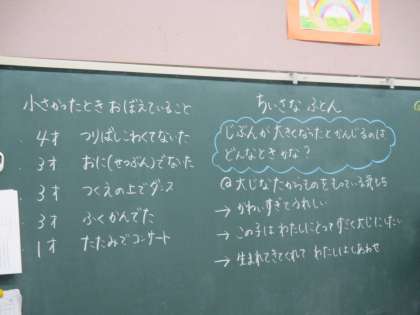 小さかったとき おぼえていること
4才 つりばしこわくてないた
3才 おに(せつぶん)でないた
3才 つくえの上でダンス
3才 ふくがんでた
1才 たたみでコンサート
ちいさな ふとん
じぶんが大きくなったとかんじるのは
どんなときかな?
大じなたからものをもっている気もち
→ かわいすぎてうれしい
→ この子は わたしにとってすごく大じにしたい
→ 生まれてきてくれて わたしはしあわせ